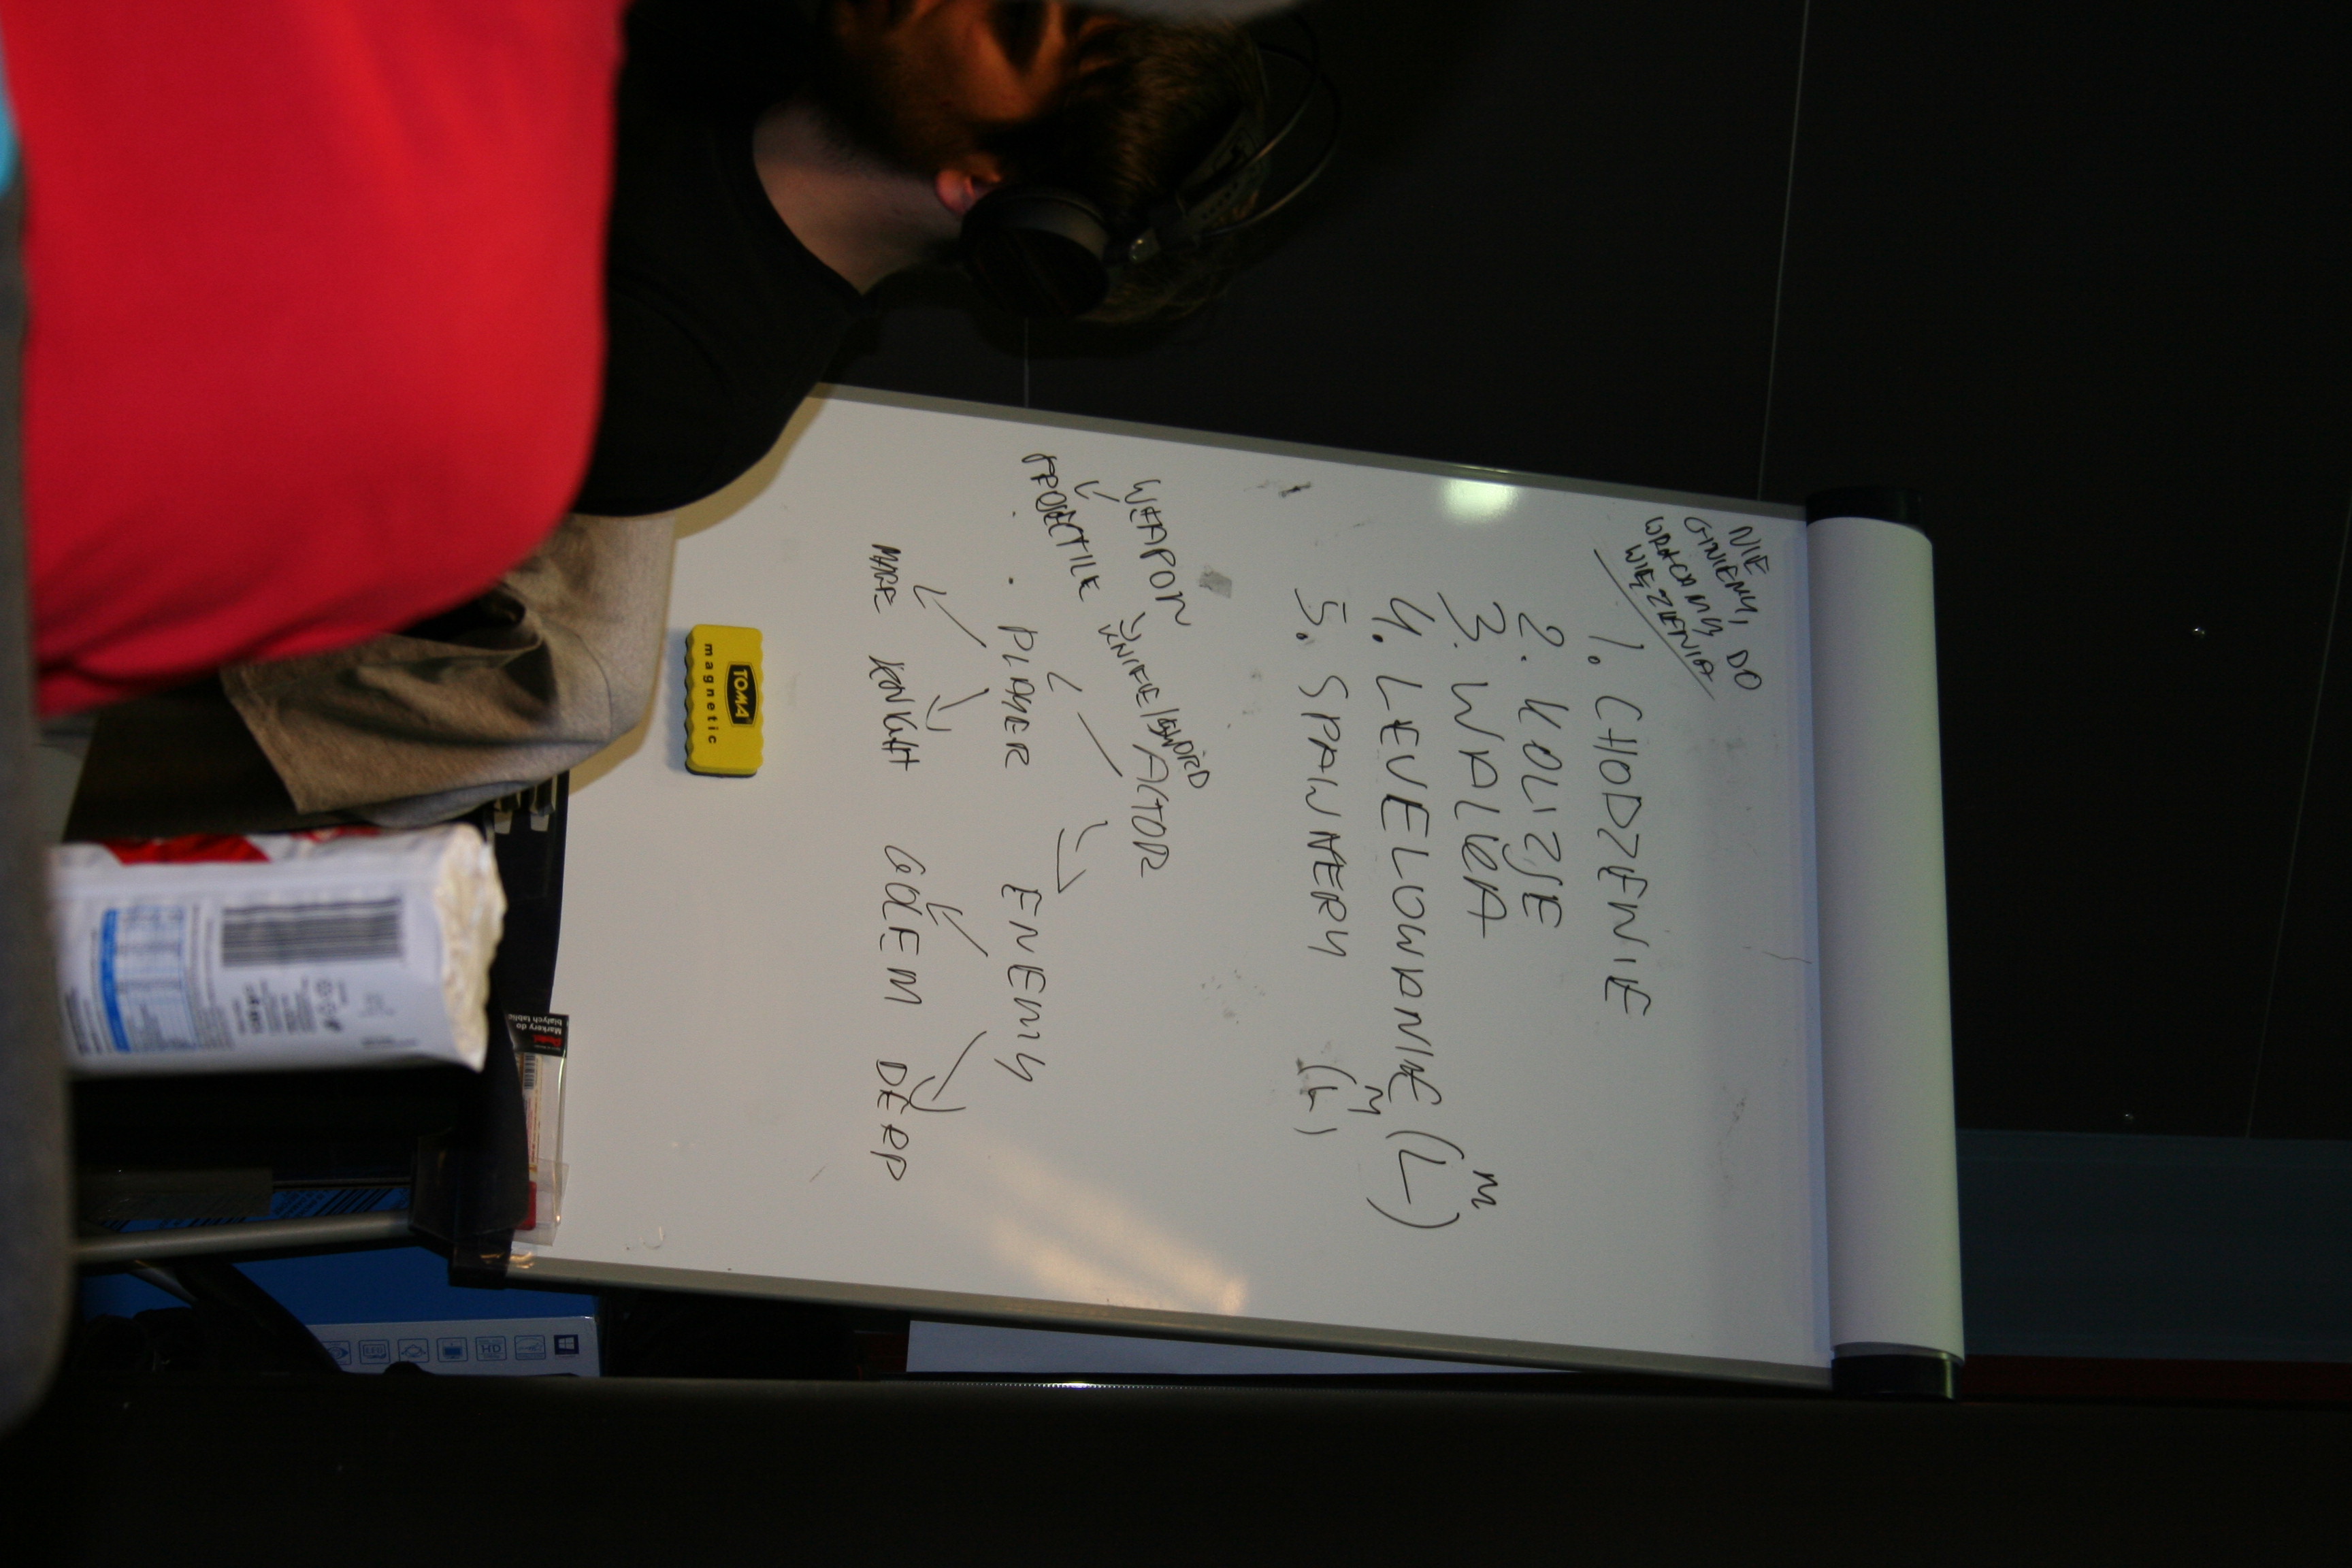 NIE
GINIEMY, DO
WRACAMY
WIĘZIENIA
1. CHODZENIE
2. KOLIZJE
3. WALKA
4. LEVELOWANIE (L^M)
5. SPAWNERY (L^M)
WEAPON
PROJECTILE KNIFE/SWORD
ACTOR
PLAYER ENEMY
MAGE KNIGHT GOLEM DERP
TOMA
magnetic
Markery do
białych tablic
LED
HD